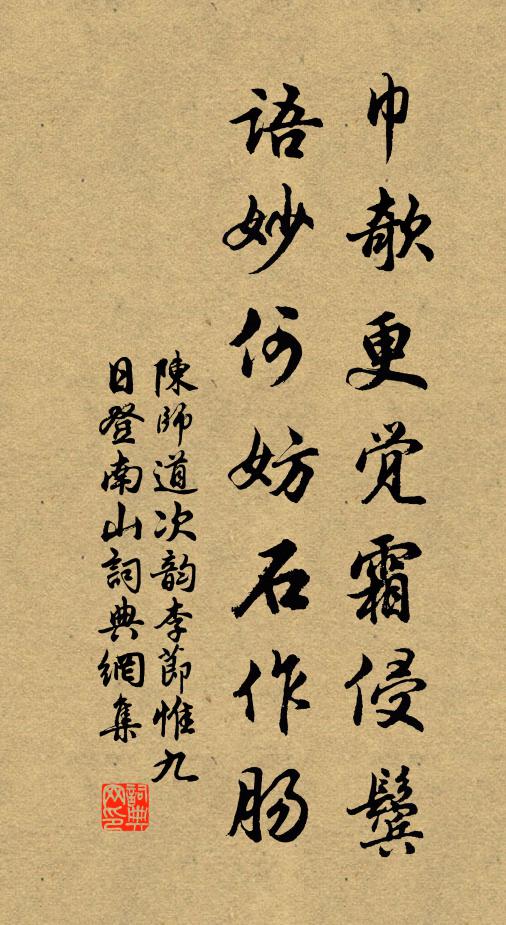 巾欹更觉霜侵鬓
语妙何妨石作肠
陳師道次韵李節惟九
日登南山詞典網集
詞典
网印